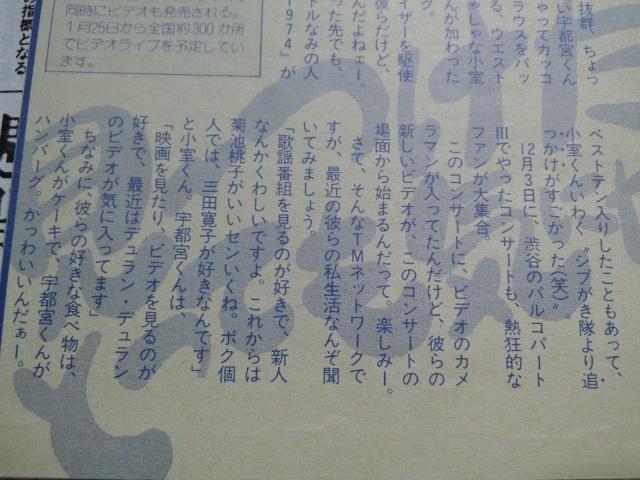 抜群、ちょっ
い宇都宮くん
やってカッコ
ラウスをバッ
る、ウエスト
ゃしゃな小室
んが加わった
ク。
イザーを駆使
彼らだけど、
んだよねェー。
った先でも、
トルなみの人
1974」が
同時にビデオも発売される。
1月25日から全国約300か所
でビデオライブを予定してい
ます。
の指標となる
ベストテン入りしたこともあって、
小室くんいわく〝シブがき隊より追
っかけがすごかった(笑)〟。
12月3日に、渋谷のパルコパート
IIIでやったコンサートも、熱狂的な
ファンが大集合。
このコンサートに、ビデオのカメ
ラマンが入ってたんだけど、彼らの
新しいビデオが、このコンサートの
場面から始まるんだって。楽しみー。
さて、そんなTMネットワークで
すが、最近の彼らの私生活なんぞ聞
いてみましょう。
「歌謡番組を見るのが好きで、新人
なんかくわしいですよ。これからは
菊池桃子がいいセンいくね。ボク個
人では、三田寛子が好きなんです」
と小室くん。宇都宮くんは、
「映画を見たり、ビデオを見るのが
好きで、最近はデュラン・デュラン
のビデオが気に入ってます」
ちなみに、彼らの好きな食べ物は、
小室くんがケーキで、宇都宮くんが
ハンバーグ。かっわいいんだぁー。